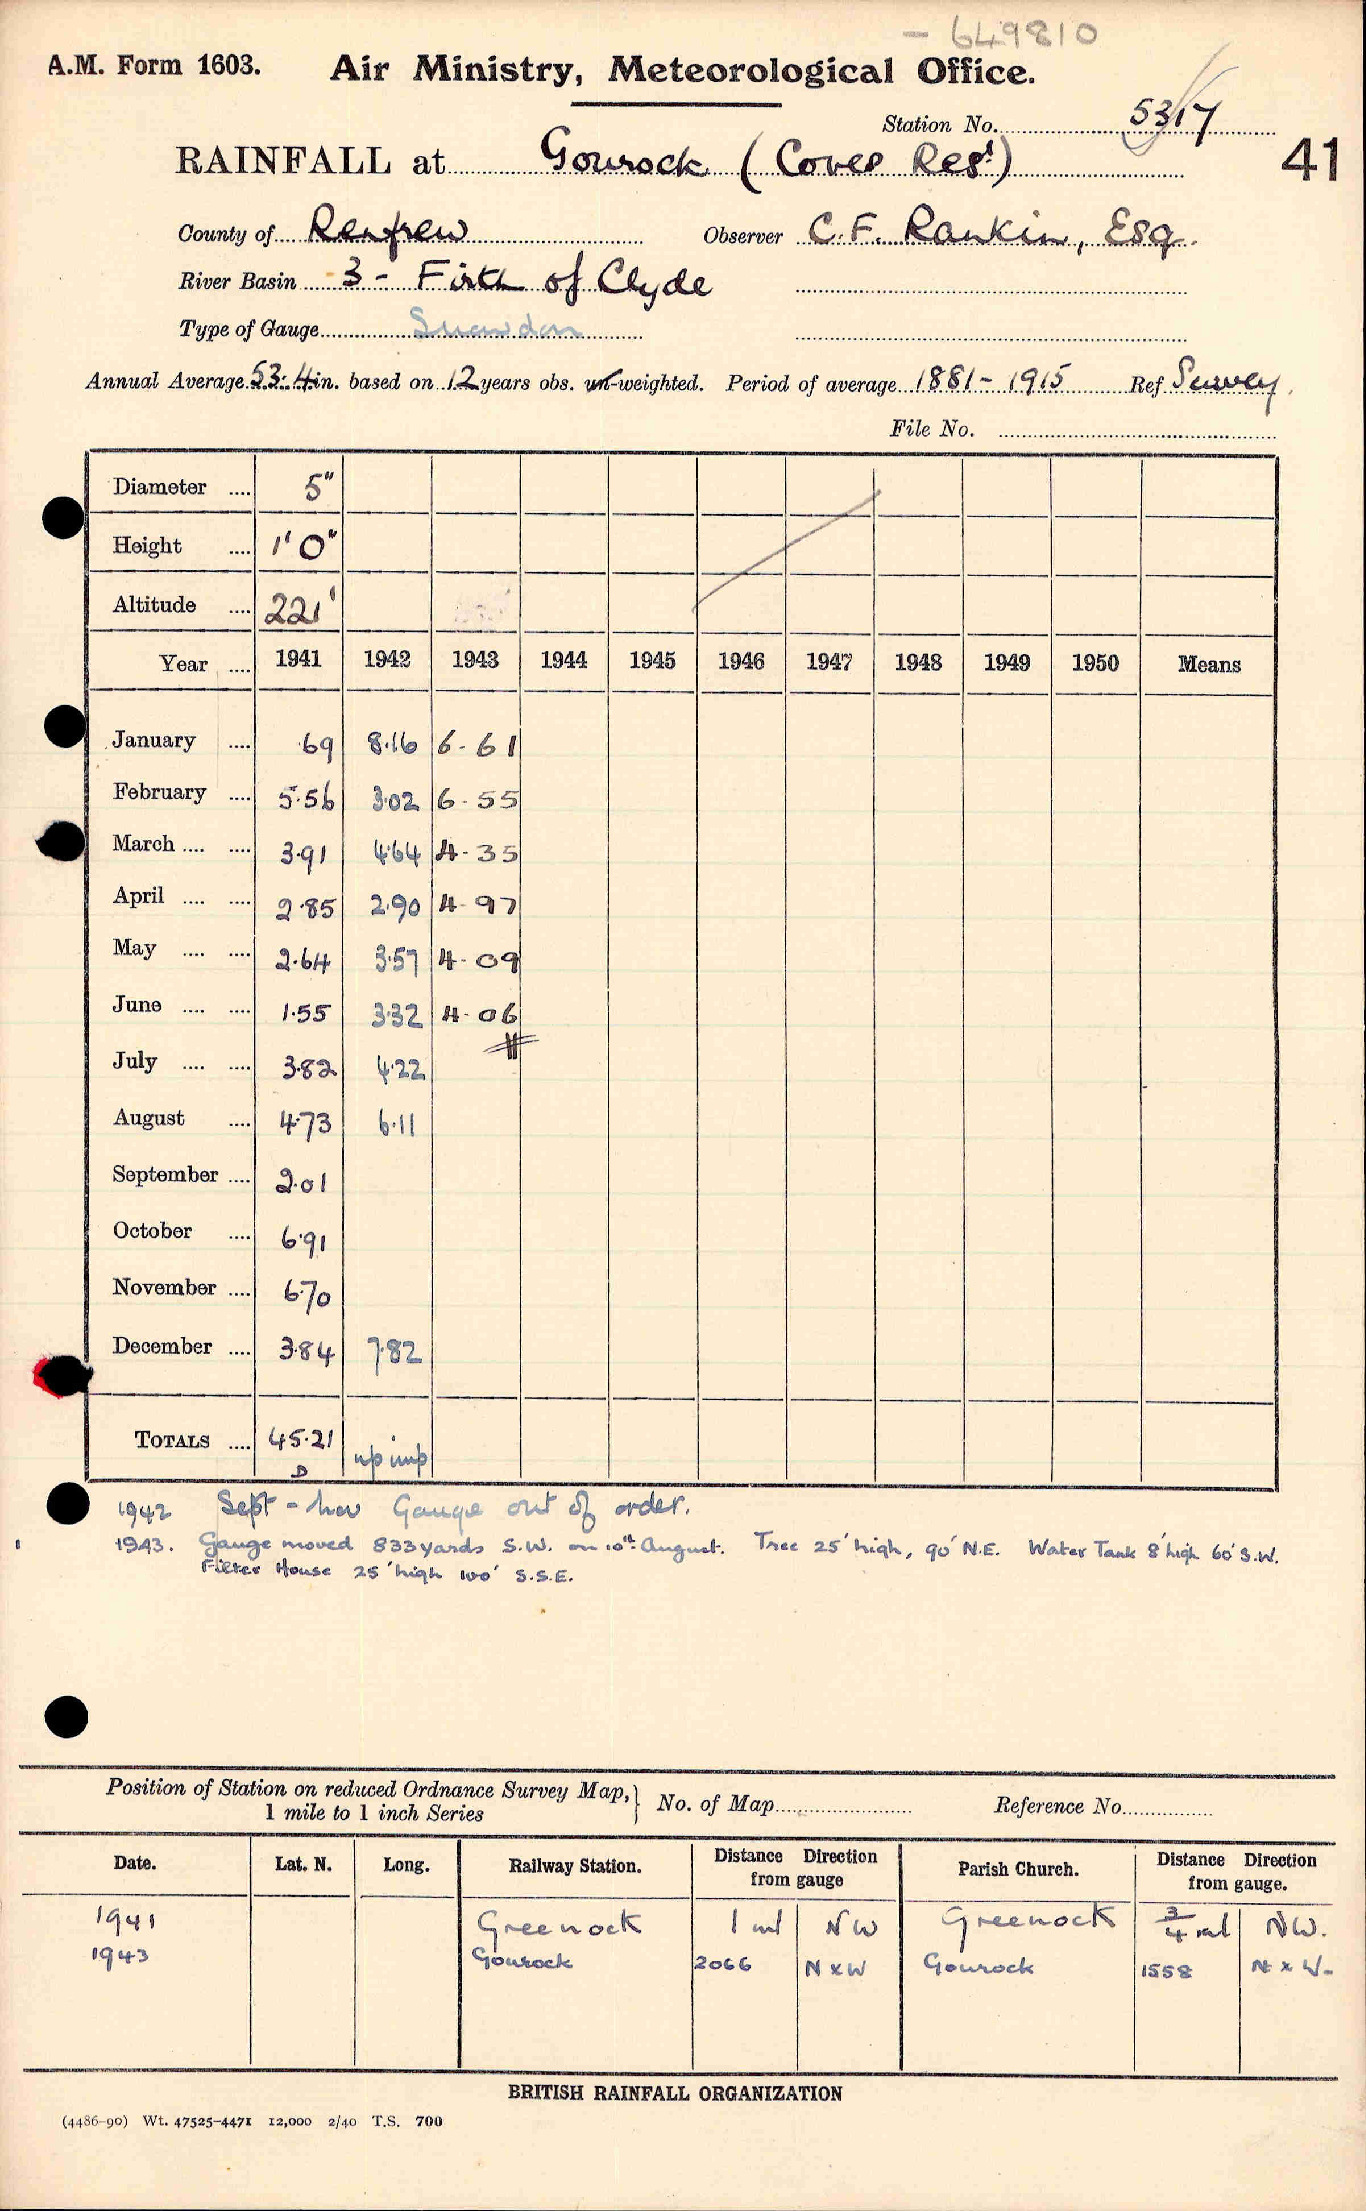 - 649810
A.M. Form 1603. Air Ministry, Meteorological Office.
Station No. 5317
41
RAINFALL at Gourock (Coves Resr)
County of Renfrew Observer C.F. Rankin, Esq.
River Basin 3 - Firth of Clyde
Type of Gauge Snowdon
Annual Average 53.4 in. based on 12 years obs. un-weighted. Period of average 1881 - 1915 Ref Survey.
File No.
Diameter .... 5"
Height .... 1' 0"
Altitude .... 221'
Year .... 1941 1942 1943 1944 1945 1946 1947 1948 1949 1950 Means
January .... .69 8.16 6.61
February .... 5.56 3.02 6.55
March .... .... 3.91 4.64 4.35
April .... .... 2.85 2.90 4.97
May .... .... 2.64 3.57 4.09
June .... .... 1.55 3.32 4.06
July .... .... 3.82 4.22
August .... 4.73 6.11
September .... 2.01
October .... 6.91
November .... 6.70
December .... 3.84 7.82
TOTALS .... 45.21 up imp
D
1942 Sept - Nov Gauge out of order.
1943. Gauge moved 833 yards S.W. on 10th August. Tree 25' high, 90' N.E. Water Tank 8' high 60' S.W.
Filter House 25' high 100' S.S.E.
Position of Station on reduced Ordnance Survey Map, } No. of Map Reference No.
1 mile to 1 inch Series
Date. Lat. N. Long. Railway Station. Distance Direction from gauge Parish Church. Distance Direction from gauge.
1941 Greenock 1 ml NW Greenock 3/4 ml NW.
1943 Gourock 2066 N x W Gourock 1558 N x W-
BRITISH RAINFALL ORGANIZATION
(4486-90) Wt. 47525-4471 12,000 2/40 T.S. 700